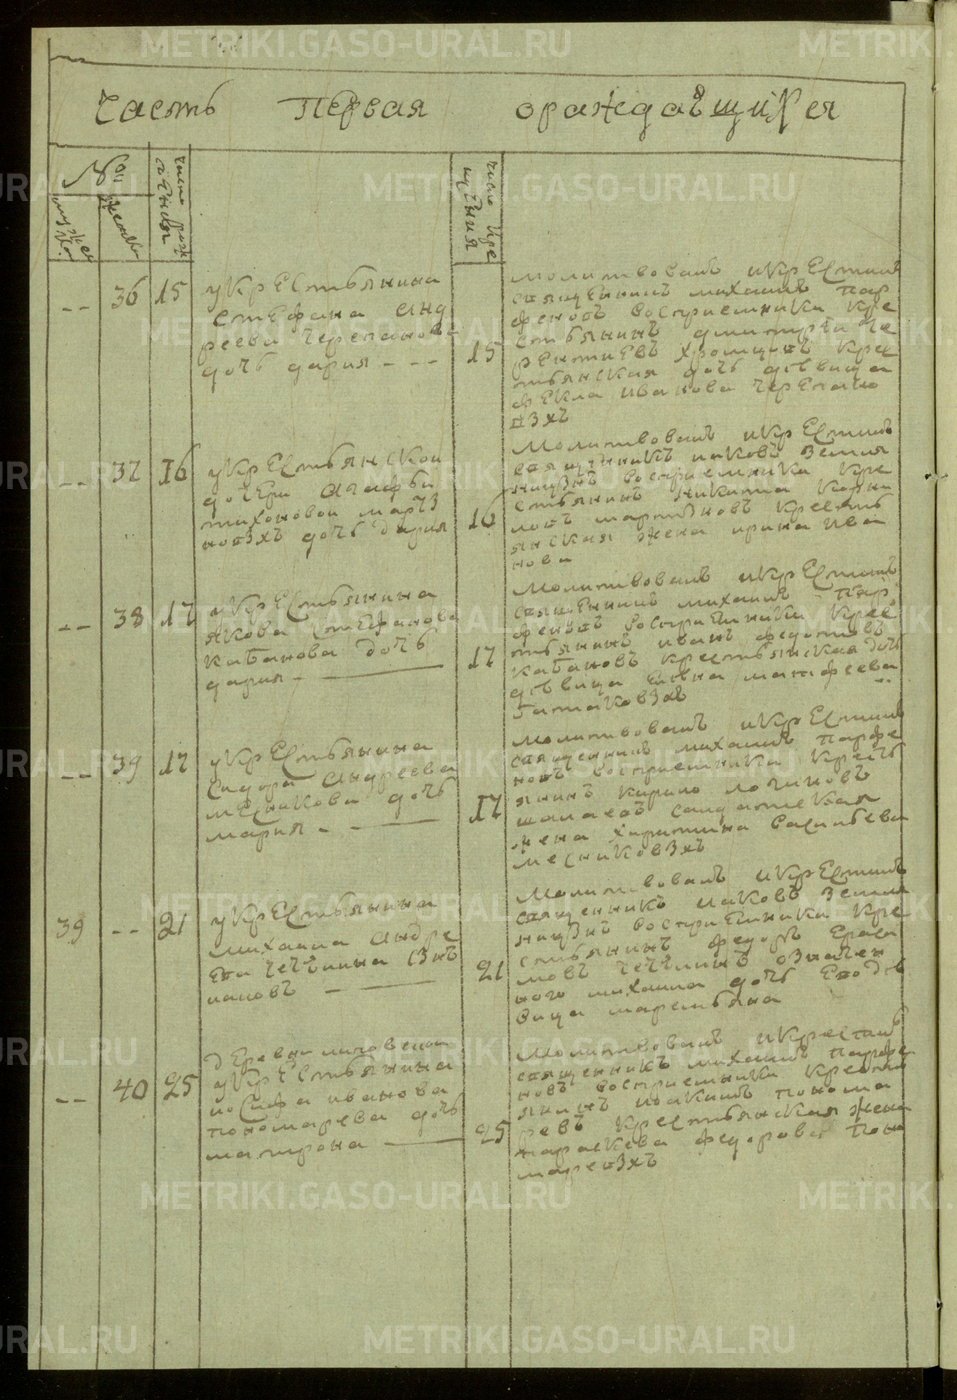 Часть Первая ораждавщихся
№
число рож
дения
число кре
щения
-- 36 15
укрестьянина
стефана анд
реева черепанова
дочь дария - - -
15
молитвовалъ икрестилъ
священникъ михаилъ пар
феновъ восприемники кре
стьянинъ димитрий те
рентиевъ хромцовъ крес
тьянская дочь девица
фекла иванова черепано
выхъ
-- 37 16
укрестьянской
дочери агафьи
тихоновой марты
новыхъ дочь дария
16
молитвовалъ икрестилъ
священникъ иаковъ земля
ницынъ восприемники кре
стьянинъ никита корни
ловъ мартыновъ крестья
янская жена ирина ива
нова
-- 38 17
укрестьянина
якова стефанова
кабанова дочь
дария
17
молитвовалъ икрестилъ
священникъ михаилъ пар
феновъ восприемники крес
тьянинъ иванъ федотовъ
кабановъ крестьянская дочь
девица матфеева
-- 39 17
укрестьянина
сидора андреева
месникова дочь
мария
17
молитвовалъ икрестилъ
священникъ михаилъ парфе
новъ восприемники кресть
янинъ кирило логиновъ
шалаевъ салдатская
жена харитина васильева
месниковыхъ
39 -- 21
укрестьянина
михаила андре
ева сынъ
21
молитвовалъ икрестилъ
священникъ иаковъ земля
ницынъ восприемники кре
стьянинъ федоръ
значен
ного михаила дочь девица
-- 40 25
деревни
укрестьянина
иосифа иванова
пономарева дочь
матрона
25
молитвовалъ икрестилъ
священникъ михаилъ парфе
новъ восприемники кресть
янинъ понома
ревъ крестьянская жена
параскева федорова поно
маревыхъ
METRIKI.GASO-URAL.RU